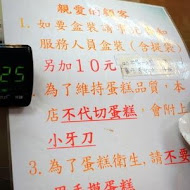 親愛的顧客
1. 如要盒裝請事先告知
服務人員盒裝(含提袋)
另加10元
2. 為了維持蛋糕品質,本
店不代切蛋糕
小牙刀
3. 為了蛋糕衛生,請不要
25